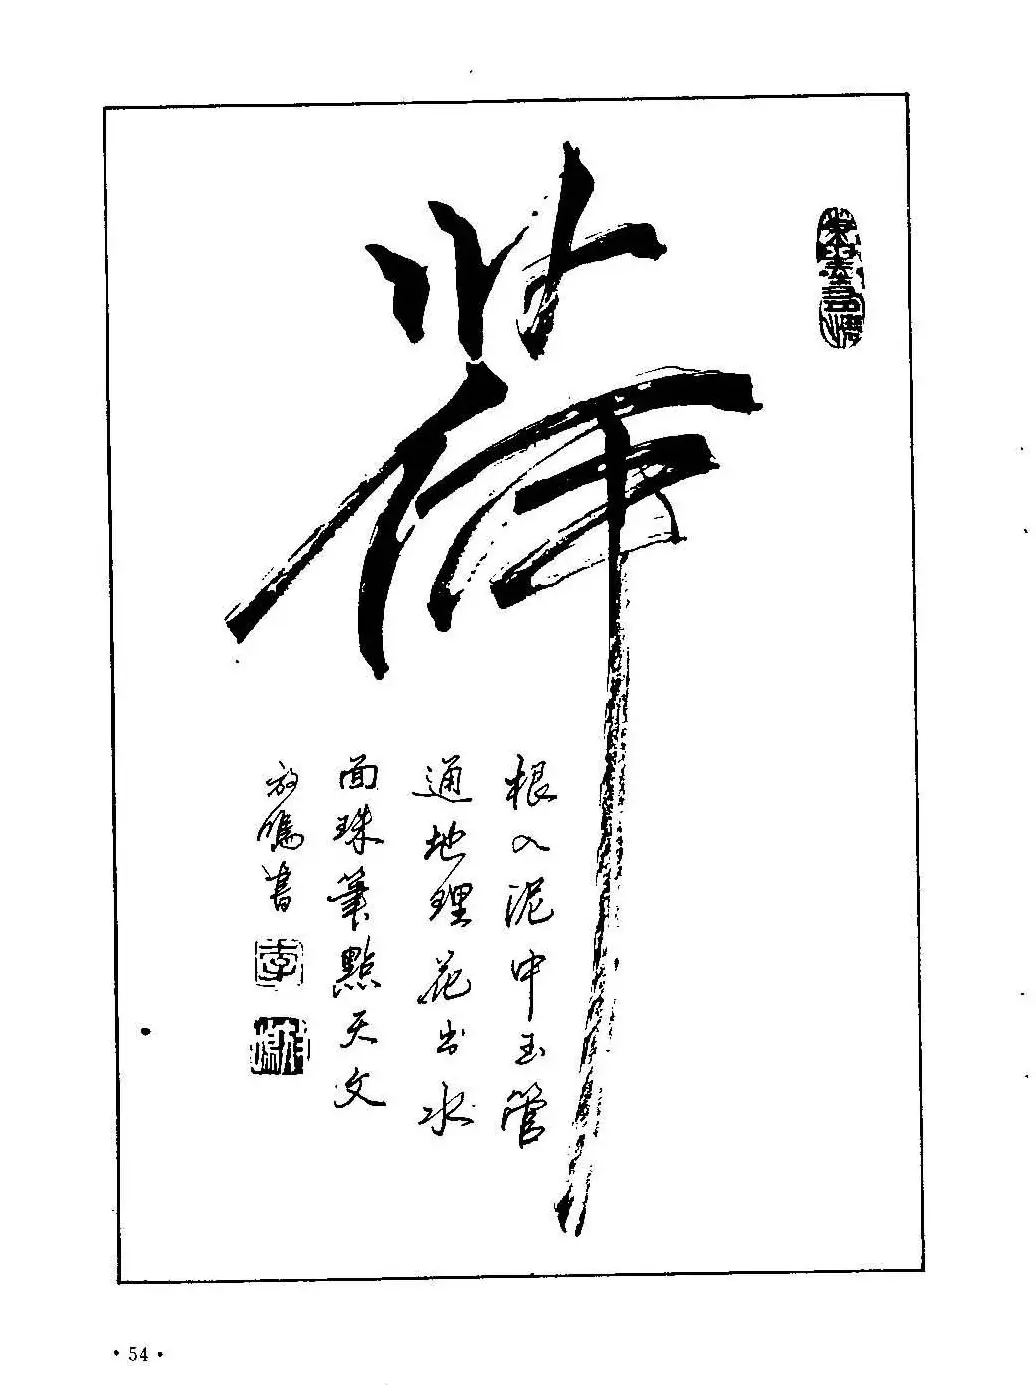 荷
根入泥中玉管
通地理花出水
面珠笔點天文
放鳴書
李
·54·